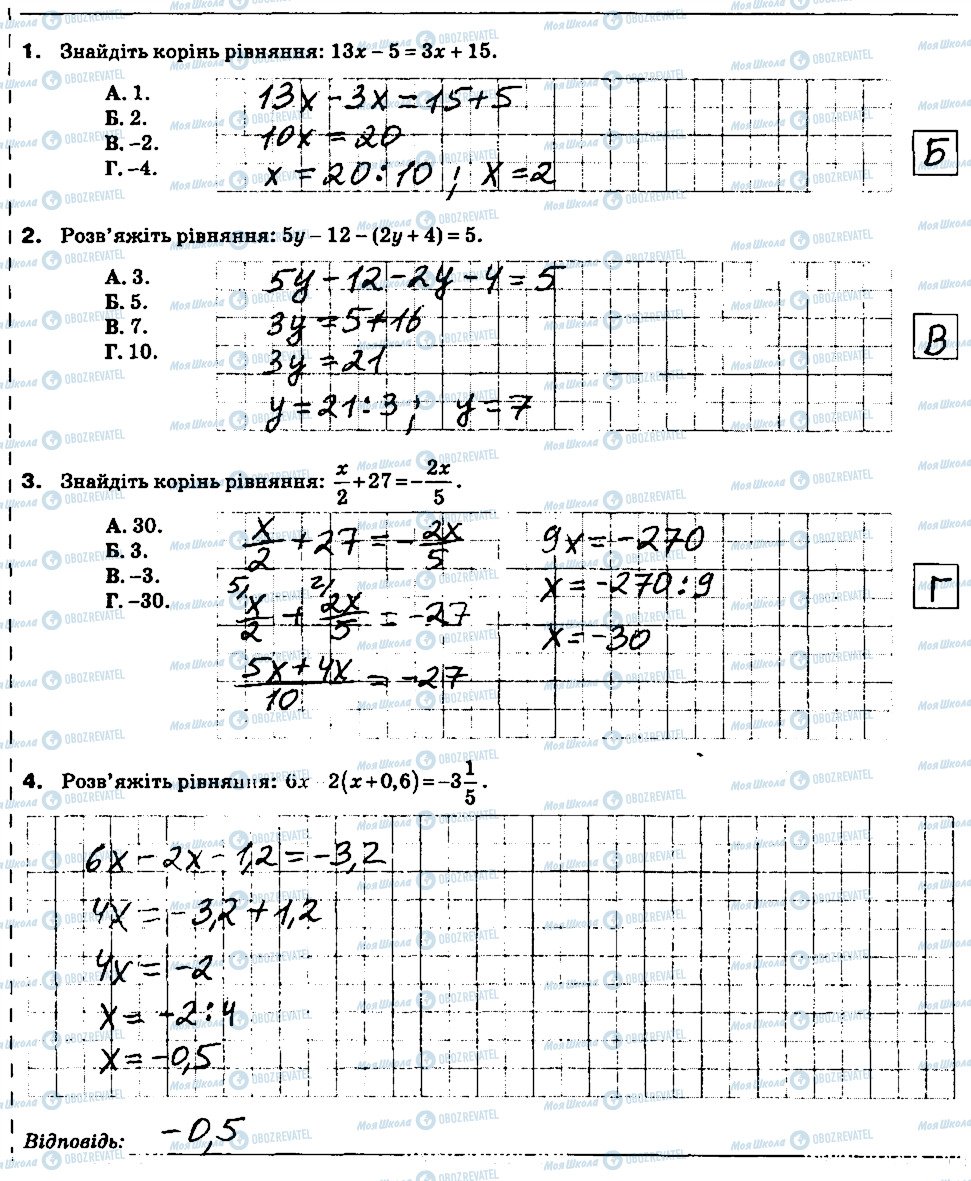 1. Знайдіть корінь рівняння: 13x – 5 = 3x + 15.
А. 1.
Б. 2.
В. –2.
Г. –4.
13x - 3x = 15 + 5
10x = 20
x = 20 : 10 ; x = 2
Б
2. Розв'яжіть рівняння: 5y – 12 – (2y + 4) = 5.
А. 3.
Б. 5.
В. 7.
Г. 10.
5y - 12 - 2y - 4 = 5
3y = 5 + 16
3y = 21
y = 21 : 3 ; y = 7
В
3. Знайдіть корінь рівняння: x/2 + 27 = – 2x/5 .
А. 30.
Б. 3.
В. –3.
Г. –30.
x/2 + 27 = - 2x/5
5/ x/2 + 2/ 2x/5 = -27
5x + 4x / 10 = -27
9x = -270
x = -270 : 9
x = -30
Г
4. Розв'яжіть рівняння: 6x 2(x + 0,6) = –3 1/5 .
6x - 2x - 1,2 = -3,2
4x = -3,2 + 1,2
4x = -2
x = -2 : 4
x = -0,5
Відповідь: -0,5
МояШкола OBOZREVATEL